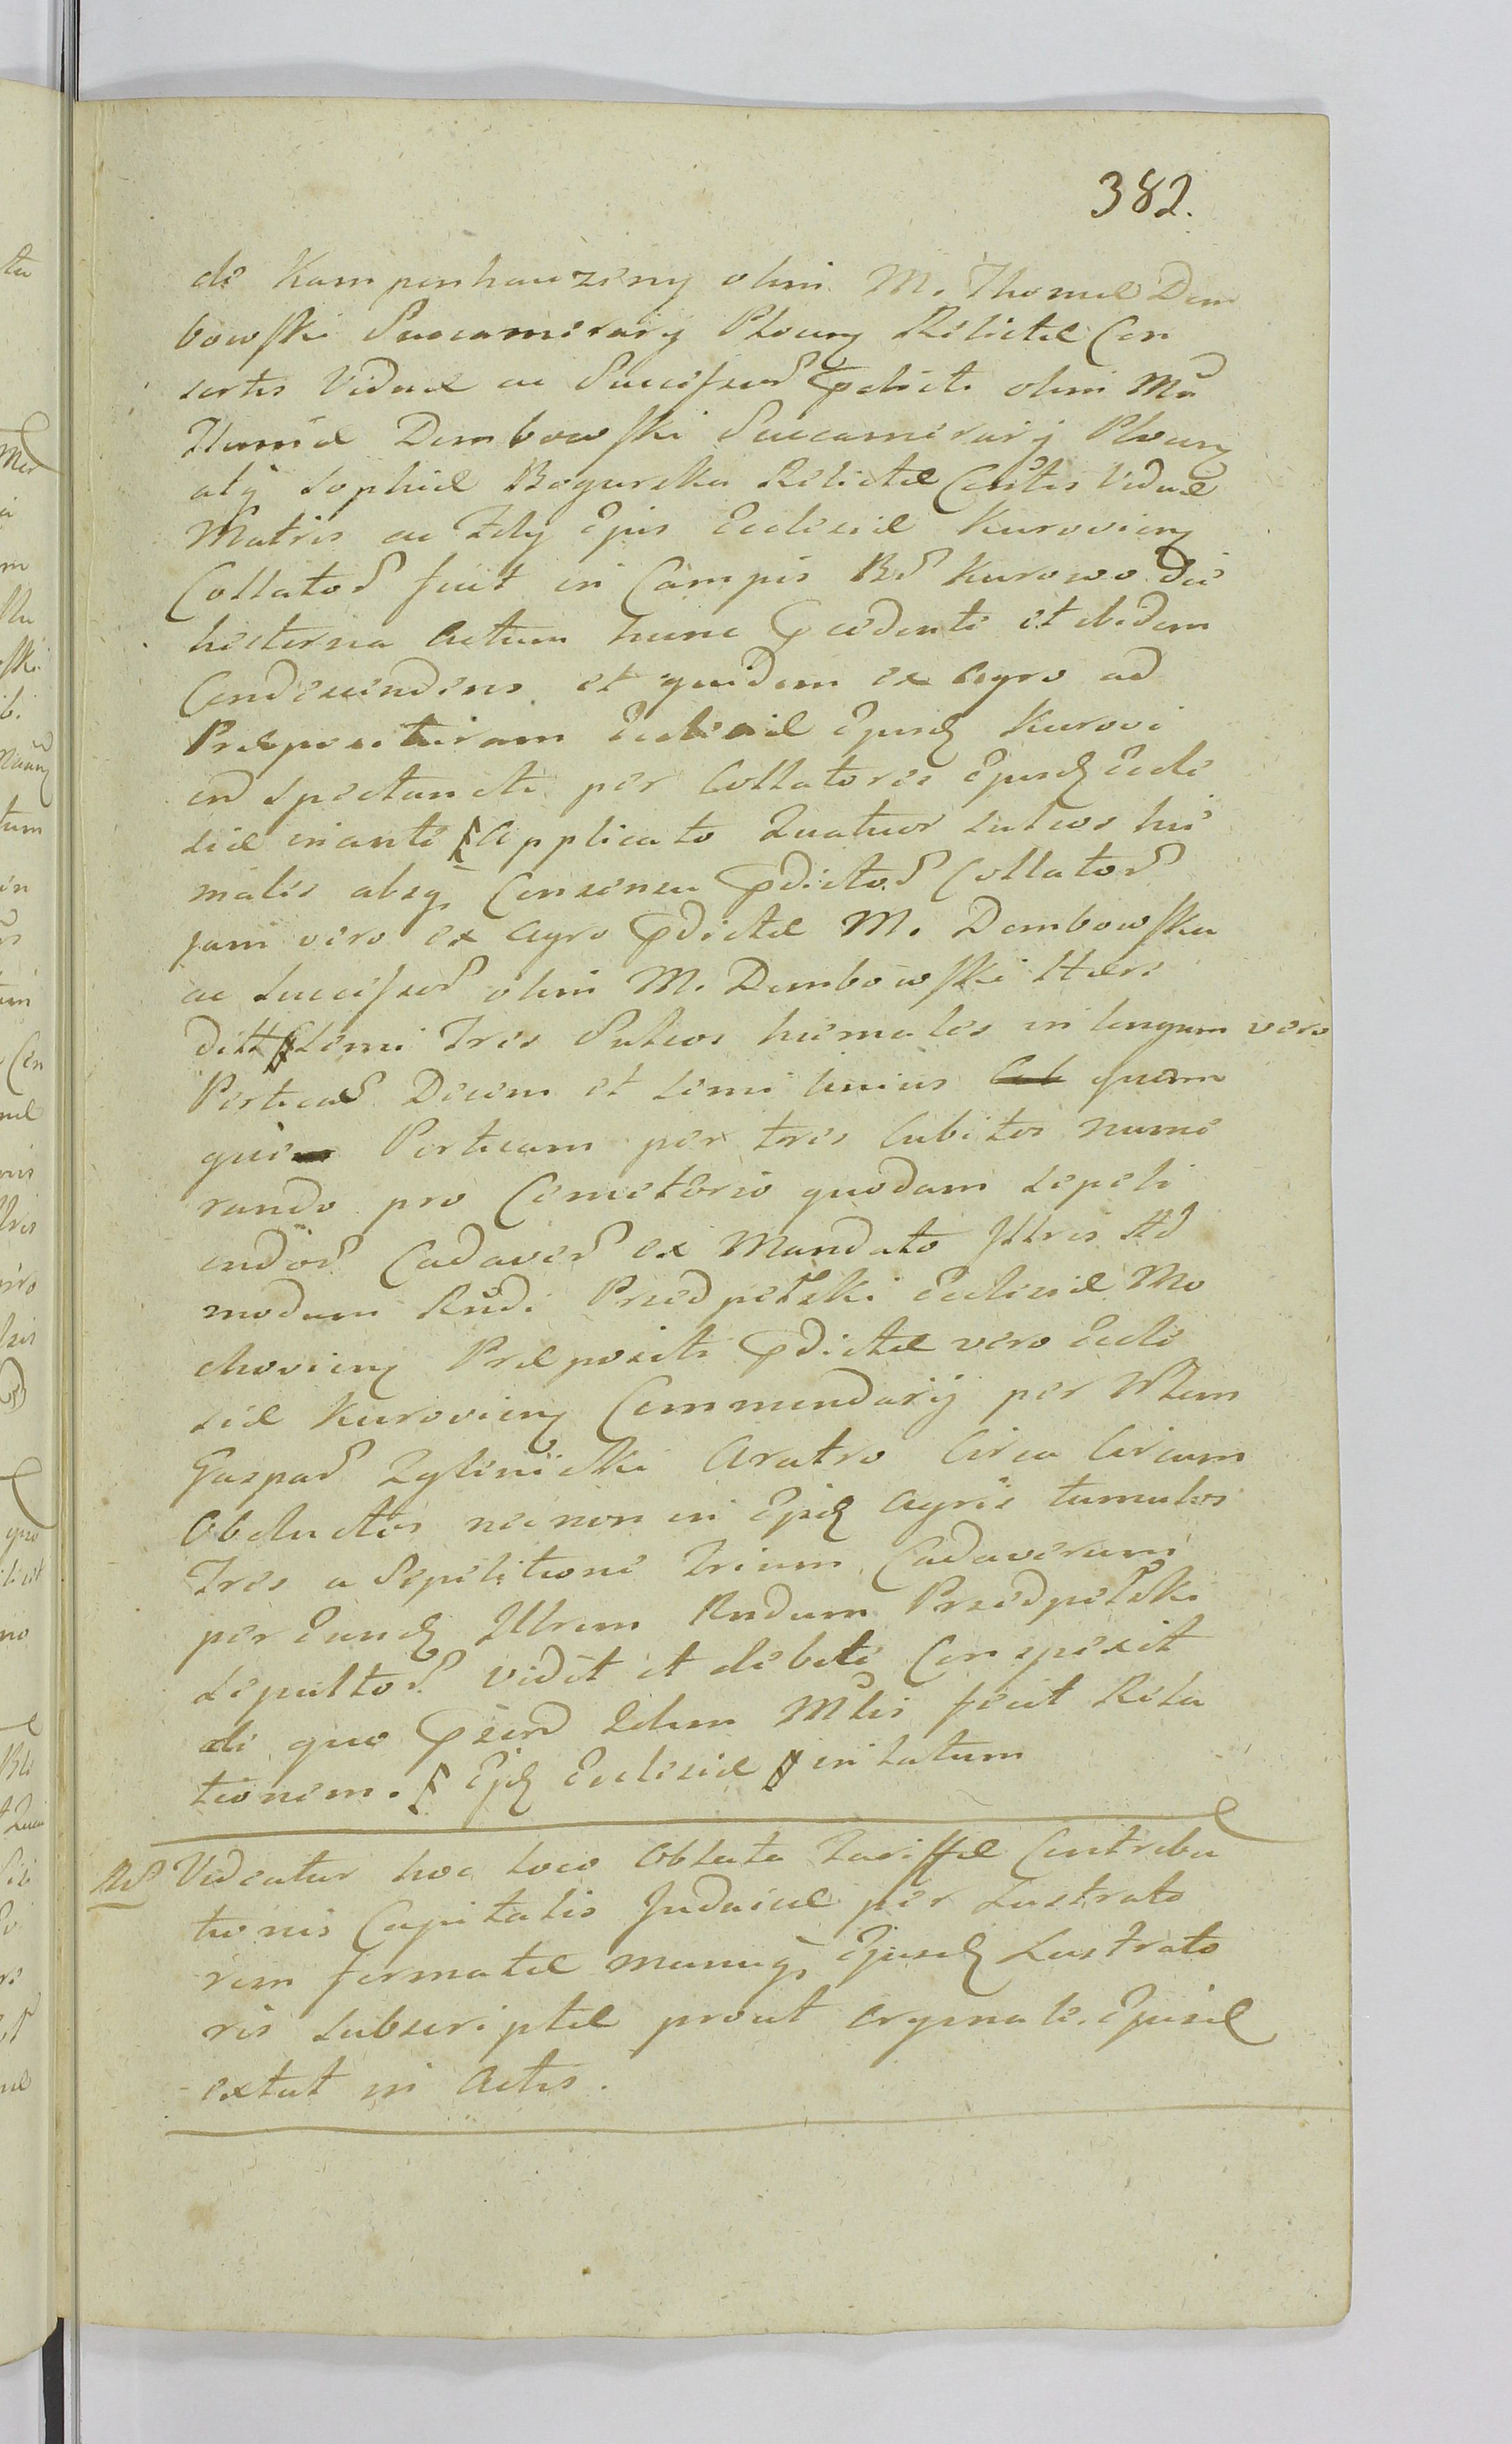 382.
de Kampenhauzeny olim M. Thomæ Dem
bowski Succamerarij Plocen Relictæ Con
sortis Viduæ ac Succeſsor pdicti olim Mci
Thomæ Dembowski Succamerarij Plocen
atq Sophiæ Bogurska Relictæ Conſtis Viduæ
Matris ac Filij Ejus Ecclesiæ Kurovien
Collator fuit in Campis Br Kurowo Die
hesterna Actum hunc pcedente et ibidem
Condescendens et quidem ex Agro ad
Præposituram Ecclesiæ Ejusd Kurovi
en Spectancti per Collatores Ejusd Eccle
siæ inante Applicato Quatuor Sulcos hie
males absq Consensu pdictor Collator
jam vero ex Agro pdictæ M. Dembowska
ac Succeſsor olim M. Dembowski Hære
ditt Semi Tres Sulcos hiemales in longum vero
Perticar Decem et Semi unius quam
que Perticam per tres Cubitos nume
rando pro Cemeterio quodam Sepeli
endor Cadaver ex Mandato Illris Ad
modum Rndi Przedpełski Ecclesiæ Mo
chovien Præpositi pdictæ vero Eccle
siæ Kurovien Commendarij per
Gaspar Zgliniecki Aratro Circa Circum
Obductos necnon in Ejusd Agris tumulos
Tres a Sepelitione Trium Cadaverum
per Eund Illrem Rndum Przedpełski
Sepultor vidit et debite Conspexit
de quo psend Idem Mtlis fecit Rela
tionem. Ejusd Ecclesiæ in latum
NB Videatur hoc loco Oblata Tariffæ Contribu
tionis Capitalis Judaicæ per Lustrato
rem formatæ manuq Ejusd Lustrato
ris Subscriptæ prout Orgynale Ejusd
extat in Actis.